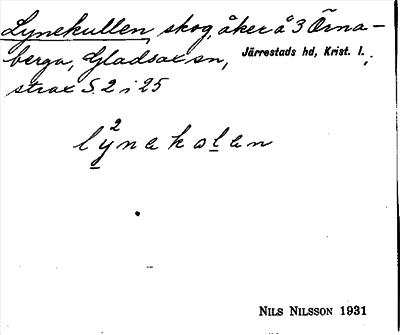 Lynekullen, skog, åker å 3 Örna-
berga, Gladsax sn, Järrestads hd, Krist. l.,
strax S. 2 i 25
l²ynekolen
NILS NILSSON 1931